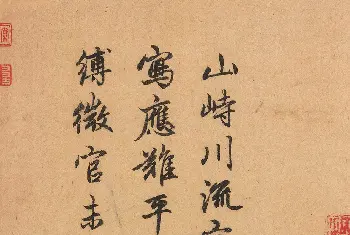 山峙川流
寫應難平
縛微官未